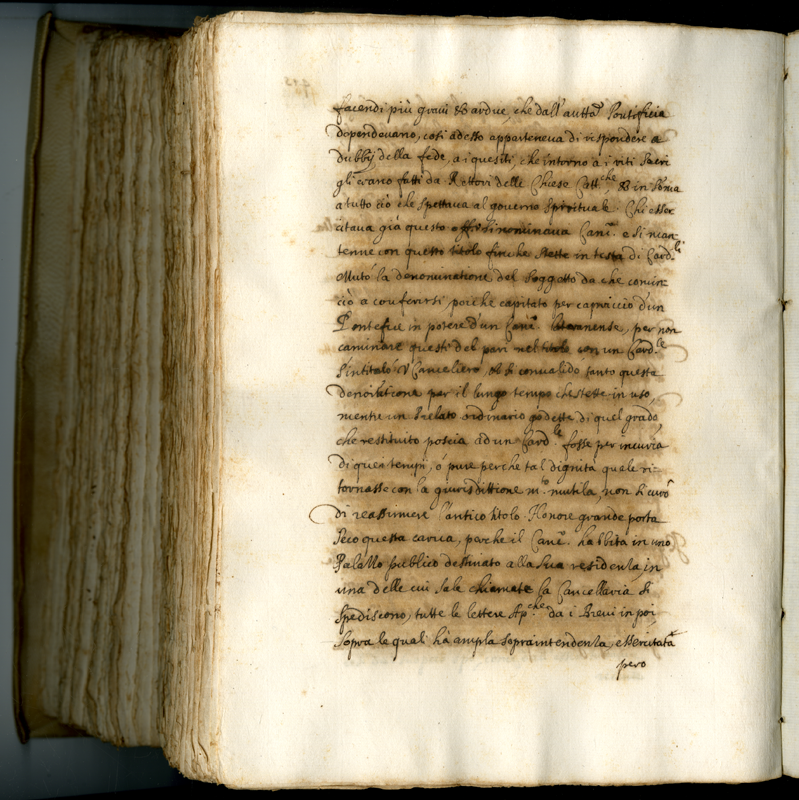 facendi più gravi & ardue, che dall'autt.à Pontificia
dependevano, così adesso apparteneva di rispondere a
dubbij della fede, a i quesiti, che intorno a i riti Sacri
gli erano fatti da Rettori delle Chiese Catt.che, & in Soma
a tutto ciò che spettava al governo spirituale. Chi esser
citava già questo offo si nominava Canc.e e si man
tenne con questo titolo finche stette in testa di Card.li
Mutò la denominatione del Soggetto da che comin
ciò a conferirsi, poiche capitato per capriccio d'un
Pontefice in potere d'un Can.co Lateranense, per non
caminare questi del pari nel titolo con un Card.le
s'intitolò V.Canceliero, & si convalidò tanto questa
denominatione per il lungo tempo che stette in uso,
mentre un Prelato ordinario godette di quel grado,
che restituito poscia ad un Card.le fosse per incuria
di quei tempi, ò pure perche tal dignità quele ri-
tornasse con la giurisdittione m.to mutila, non si curò
di reassumere l'antico titolo. Honore grande porta
seco questa carica, perche il Canc.e habbita in uno
Palazzo publico destinato alla sua residenza, in
una delle cui sale chiamate la Cancellaria si
spediscono, tutte le lettere Ap.che da i Brevi in poi,
sopra le quali hà ampla sopraintendenza, essercitata
però